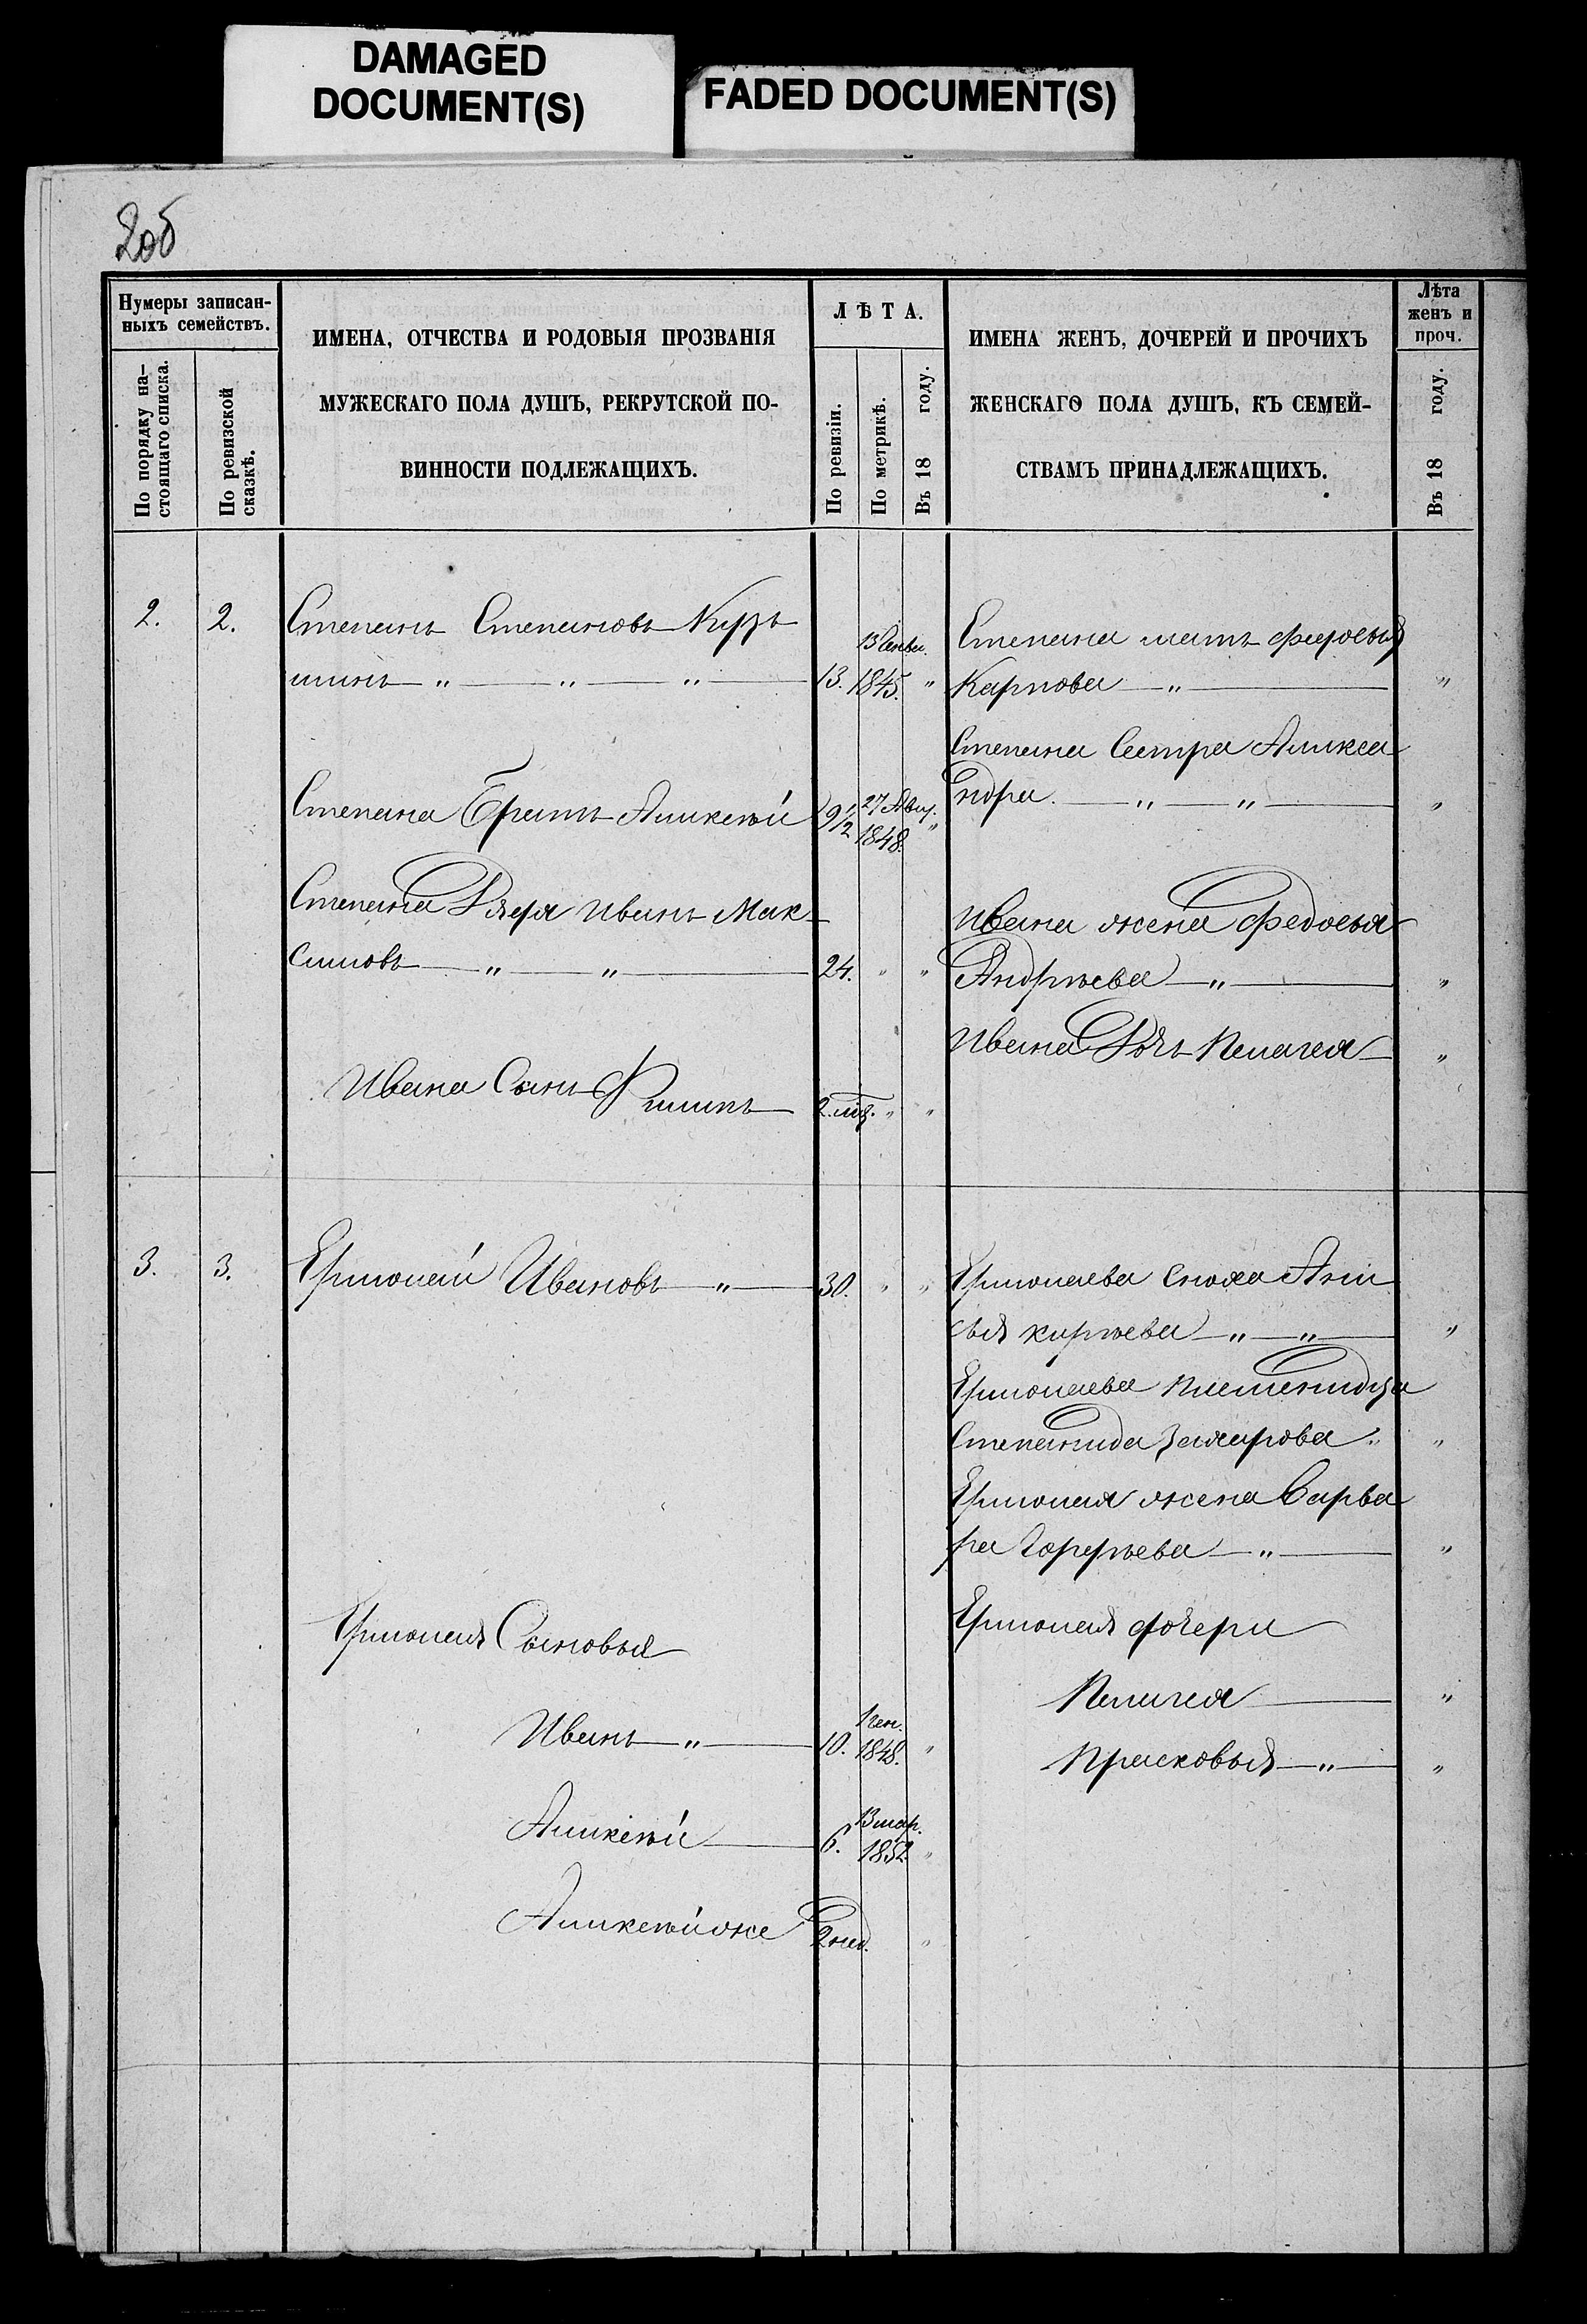 DAMAGED
DOCUMENT(S)
FADED DOCUMENT(S)
2об
Нумеры записан-
ныхъ семействъ.
По порядку на-
стоящаго списка.
По ревизской
сказкѣ.
ИМЕНА, ОТЧЕСТВА И РОДОВЫЯ ПРОЗВАНІЯ
МУЖЕСКАГО ПОЛА ДУШЪ, РЕКРУТСКОЙ ПО-
ВИННОСТИ ПОДЛЕЖАЩИХЪ.
ЛѢТА.
По ревизіи.
По метрикѣ.
Въ 18 году.
ИМЕНА ЖЕНЪ, ДОЧЕРЕЙ И ПРОЧИХЪ
ЖЕНСКАГО ПОЛА ДУШЪ, КЪ СЕМЕЙ-
СТВАМЪ ПРИНАДЛЕЖАЩИХЪ.
Лѣта
женъ и
проч.
Въ 18 году.
2. 2. Степанъ Степановъ
шинъ — „ — „ — „ — 13. 1845. „
Степана мать
Карпова — „ — „
Степана Сестра Алекса
ндра. — „ — „ — „
Степана Братъ Алексѣй 9 1/2 27 Авгу.
1848. „
Степана Дядя Иванъ Мак-
симовъ — „ — „ — 24. „ „
Ивана жена Федосья
Андрѣева — „ — „
Ивана Дочь Пелагея — „
Ивана Сынъ Филипъ — 2. мѣ. „ „
3. 3. Ермолай Ивановъ — „ — 30. „ „
Ермолаева сноха Ани
сья — „ — „ — „
Ермолаева племенница
Степанида Захарова „ „
Ермолая жена Варва
ра — „ — „
Ермолая Сыновья
Ермолая дочери
Пелагея — „
Иванъ — „ — 10. 1 ген.
1848. „
Прасковья — „ — „
Алексѣй — 6. 13 мар.
1852. „
Алексѣй же 2 нед. „